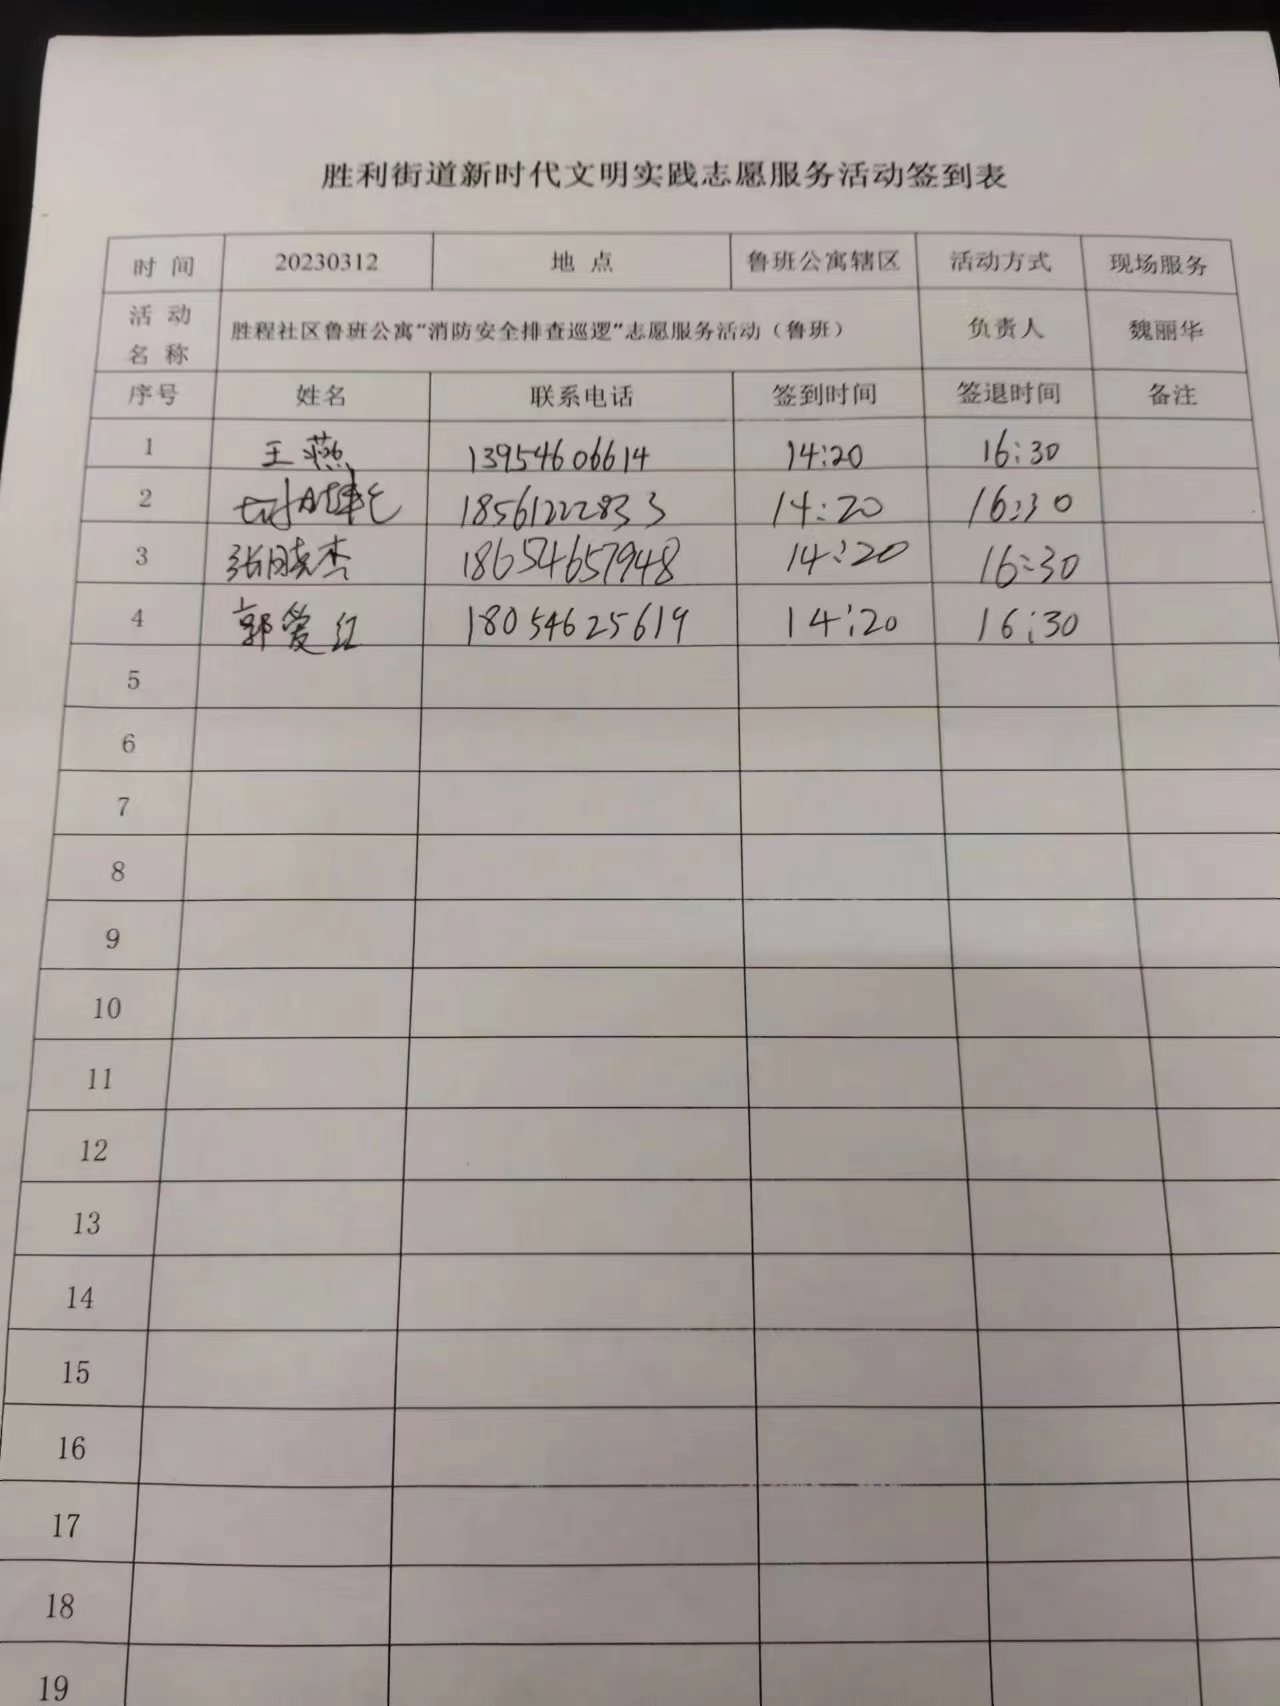 胜利街道新时代文明实践志愿服务活动签到表
时 间 20230312 地 点 鲁班公寓辖区 活动方式 现场服务
活 动 名 称 胜程社区鲁班公寓“消防安全排查巡逻”志愿服务活动（鲁班） 负责人 魏丽华
序号 姓名 联系电话 签到时间 签退时间 备注
1 王燕 13954606614 14:20 16:30
2 18561222833 14:20 16:30
3 张晓杰 18654657948 14:20 16:30
4 郭爱红 18054625619 14:20 16:30
5
6
7
8
9
10
11
12
13
14
15
16
17
18
19